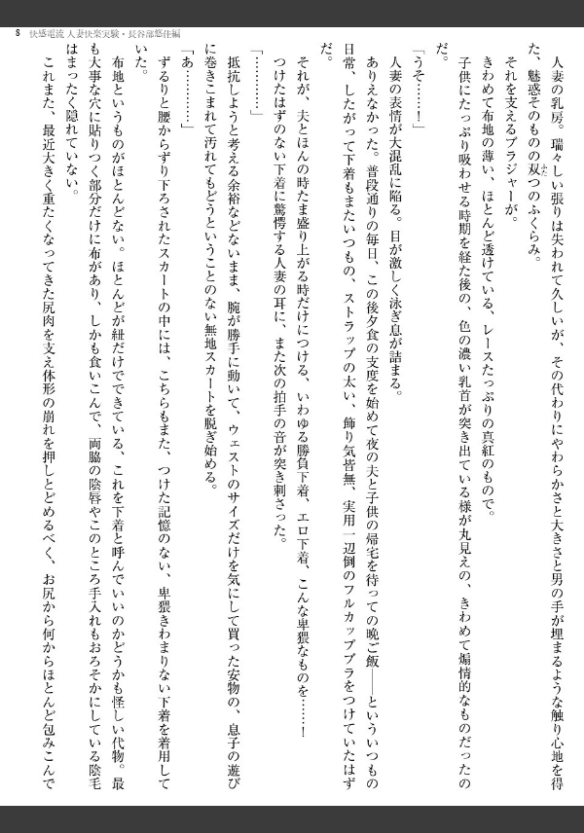 8　快感電流 人妻快楽実験・長谷部悠任編
人妻の乳房。瑞々しい張りは失われて久しいが、その代わりにやわらかさと大きさと男の手が埋まるような触り心地を得
た、魅惑そのものの双つのふくらみ。
それを支えるブラジャーが。
きわめて布地の薄い、ほとんど透けている、レースたっぷりの真紅のもので。
子供にたっぷり吸わせる時期を経た後の、色の濃い乳首が突き出ている様が丸見えの、きわめて煽情的なものだったの
だ。
「うそ……！」
人妻の表情が大混乱に陥る。目が激しく泳ぎ息が詰まる。
ありえなかった。普段通りの毎日、この後夕食の支度を始めて夜の夫と子供の帰宅を待っての晩ご飯――といういつもの
日常、したがって下着もまたいつもの、ストラップの太い、飾り気皆無、実用一辺倒のフルカップブラをつけていたはず
だ。
それが、夫とほんの時たま盛り上がる時だけにつける、いわゆる勝負下着、エロ下着、こんな卑猥なものを……！
つけたはずのない下着に驚愕する人妻の耳に、また次の拍手の音が突き刺さった。
「…………」
抵抗しようと考える余裕などないまま、腕が勝手に動いて、ウェストのサイズだけを気にして買った安物の、息子の遊び
に巻きこまれて汚れてもどうということのない無地スカートを脱ぎ始める。
「あ…………」
ずるりと腰からずり下ろされたスカートの中には、こちらもまた、つけた記憶のない、卑猥きわまりない下着を着用して
いた。
布地というものがほとんどない。ほとんどが紐だけでできている、これを下着と呼んでいいのかどうかも怪しい代物。最
も大事な穴に貼りつく部分だけに布があり、しかも食いこんで、両脇の陰唇やこのところ手入れもおろそかにしている陰毛
はまったく隠れていない。
これまた、最近大きく重たくなってきた尻肉を支え体形の崩れを押しとどめるべく、お尻から何からほとんど包みこんで